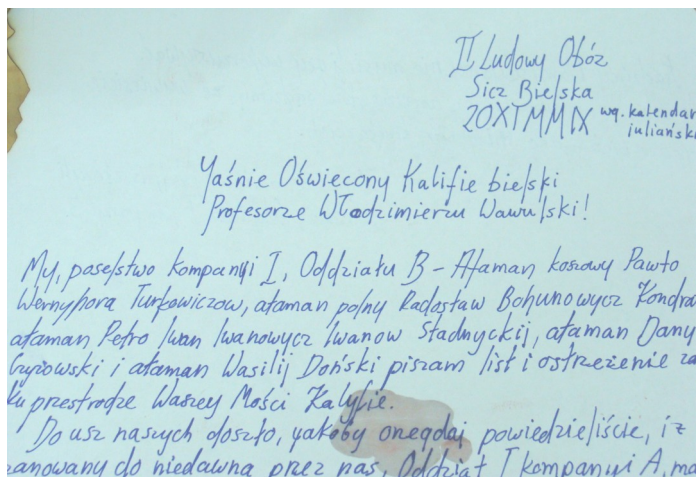 II Ludowy Obóz
Sicz Bielska
20XIMMIX wg. kalendar
juliański
Yaśnie Oświecony Kalifie bielski
Profesorze Włodzimierzu Wawulski!
My, poselstwo kompanyi I, Oddziału B – Ataman koszowy Pawło
Wernyhora Turkowiczow, ataman polny Radosław Bohunowycz Kondra
ataman Petro Iwan Iwanowycz Iwanow Stadnyckij, ataman Dany
Czyżowski i ataman Wasilij Doński piszam list i ostrzeżenie za
ku przestrodze Waszey Mości Kalyfie.
Do usz naszych doszło, yakoby onegday powiedzieliście, iż
zanowany do niedawna przez nas, Oddział I kompanyi A, ma